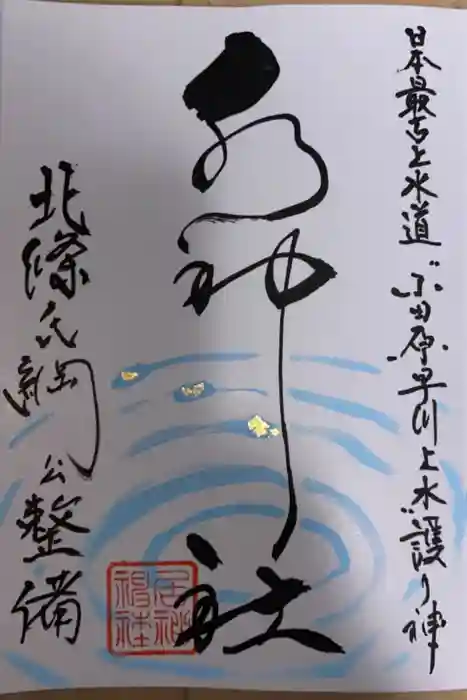 日本最古上水道 〝小田原早川上水〟護り神
水神社
北條氏綱公整備
居神
神社